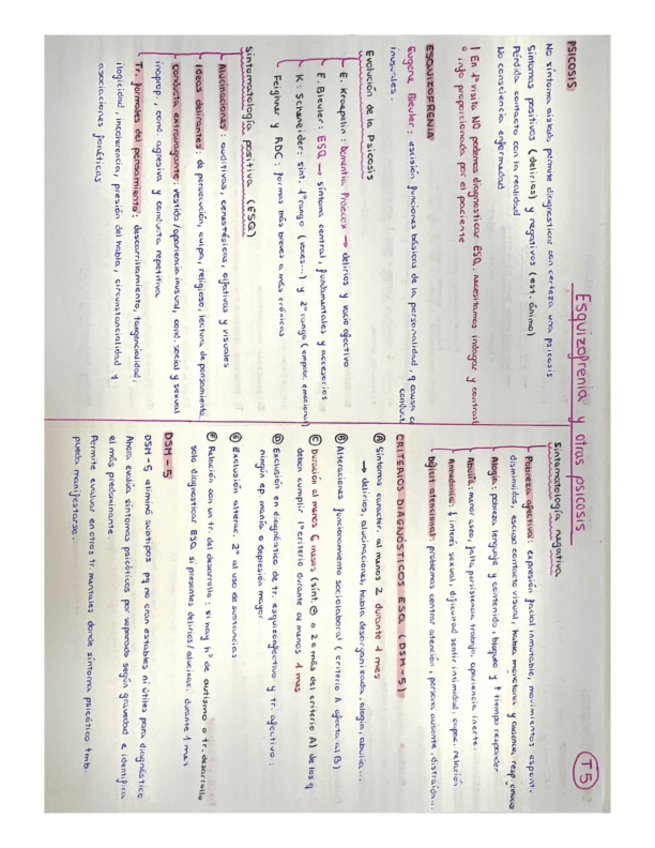 Esquizofrenia y otras psicosis
T5
PSICOSIS
No síntoma aislado permite diagnosticar con certeza una psicosis
Síntomas positivos (delirios) y negativos (est. ánimo)
Pérdida contacto con la realidad
No consciencia enfermedad
! En 1ª visita NO podemos diagnosticar ESQ. Necesitamos indagar y contrast
o info proporcionada por el paciente
ESQUIZOFRENIA
Eugene Bleuler: escisión funciones básicas de la personalidad, q causa co
conduct
inusuales.
Evolución de la Psicosis
E. Kraepelin: Dementia Praecox → delirios y vacío afectivo
E. Bleuler: ESQ → síntoma central, fundamentales y accesorios
K. Schaneider: sínt. 1º rango (voces...) y 2º rango (empobr. emocional)
Feighner y RDC: formas más breves a más crónicas
Sintomatología positiva (ESQ)
Alucinaciones: auditivas, cenestésicas, olfativas y visuales
Ideas delirantes: de persecución, culpa, religioso, lectura de pensamiento
Conducta extravagante: vestido/apariencia inusual, cond. social y sexual
inaprop., cond. agresiva y conducta repetitiva
Tr. formales del pensamiento: descarrilamiento, tangencialidad,
ilogicidad, incoherencia, presión del habla, circunstancialidad y
asociaciones fonéticas
Sintomatología negativa
Pobreza afectiva: expresión facial inmutable, movimientos espont.
disminuidos, escaso contacto visual, habla monótona y ausencia resp.
Alogia: pobreza lenguaje y contenido, bloqueo y ↑ tiempo responder
Abulia: menor aseo, falta persistencia trabajo, apariencia inerte.
Anhedonia: ↓ interés sexual, dificultad sentir intimidad, capac. relación
Déficit atencional: problemas centrar atención, persona ausente, distraída...
CRITERIOS DIAGNÓSTICOS ESQ (DSM-5)
Ⓐ Síntomas caracter. al menos 2 durante 1 mes
→ delirios, alucinaciones, habla desorganizada, alogia, abulia...
Ⓑ Alteraciones funcionamiento sociolaboral (criterio A afecta al B)
Ⓒ Duración al menos 6 meses (sínt. ⊖ o 2 o más del criterio A) de los q
deben cumplir 1º criterio durante al menos 1 mes
Ⓓ Exclusión en diagnóstico de tr. esquizoafectivo y tr. afectivo:
ningún ep. manía o depresión mayor
Ⓔ Exclusión alternat. 2ª al uso de sustancias
Ⓕ Relación con un tr. del desarrollo: si hay hª de autismo o tr. desarrollo
solo diagnosticar ESQ si presentes delirios/alucinac. durante 1 mes
DSM-5
DSM-5 eliminó subtipos pq no eran estables ni útiles para diagnóstico
Ahora evalúa síntomas psicóticos por separado según gravedad e identifica
el más predominante.
Permite evaluar en otros tr. mentales donde síntoma psicótico tmb.
pueda manifestarse.